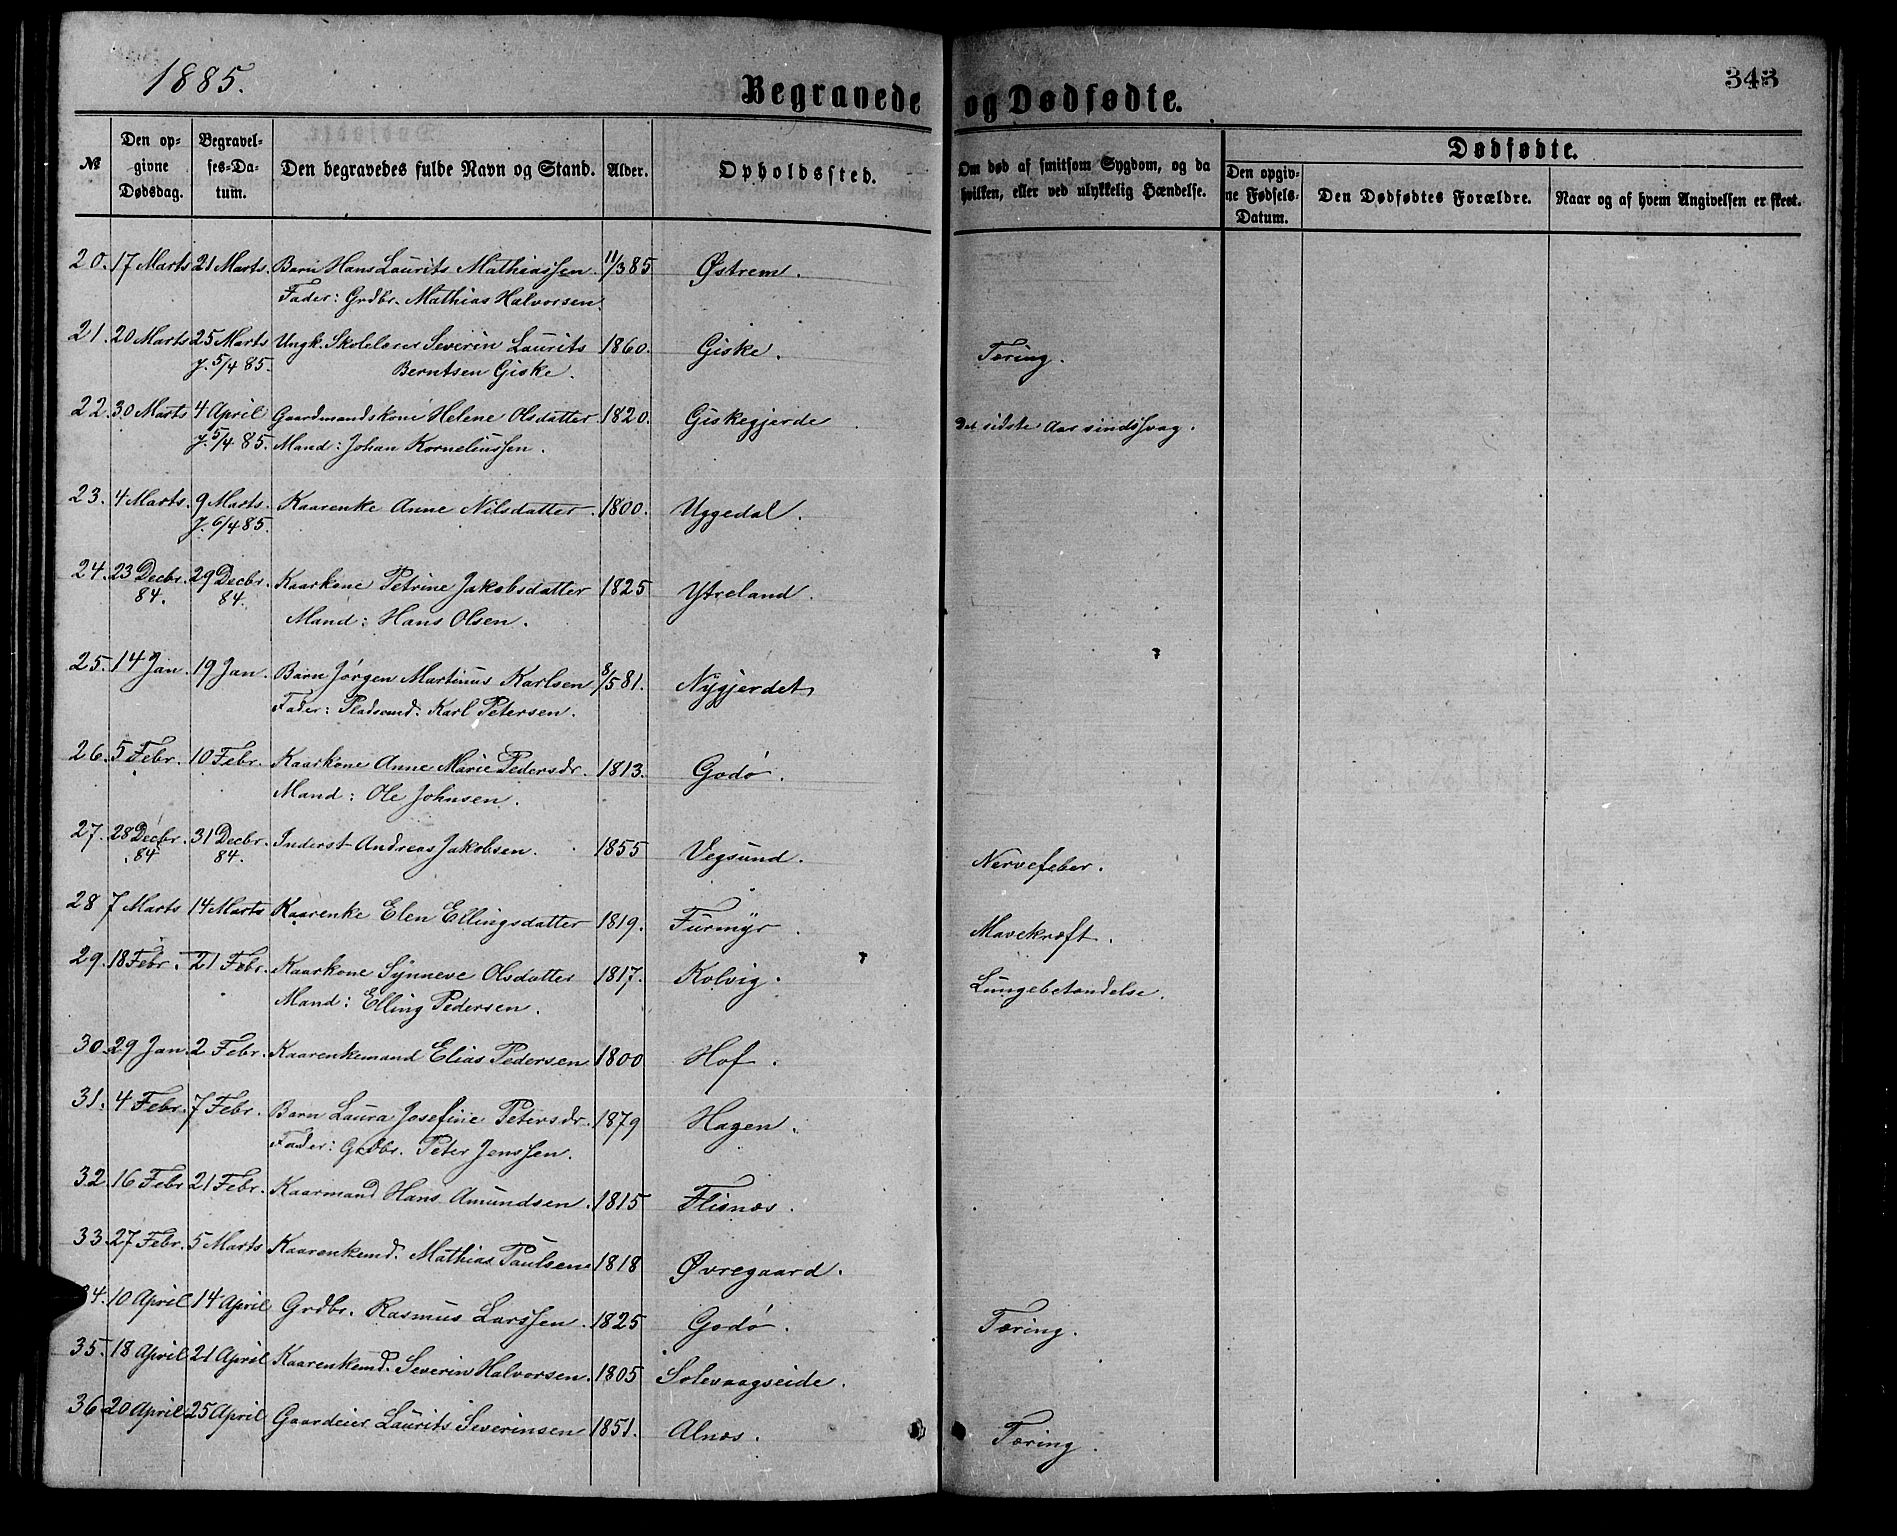 1885.
Begravede og Dødfødte.
343
№
Den opgivne Dødsdag.
Begravelses-Datum.
Den begravedes fulde Navn og Stand.
Alder.
Opholdssted.
Om død af smitsom Sygdom, og da hvilken, eller ved ulykkelig Hændelse.
Dødfødte.
Den opgivne Fødsels-Datum.
Den Dødfødtes Forældre.
Naar og af hvem Angivelsen er skeet.
20. 17 Marts 21 Marts. Barn Hans Laurits Mathiassen. 11/3 85 Østrem.
Fader: Grdbr. Mathias Halvorsen.
21. 20 Marts 25 Marts Ungk. Skolelærer Severin Laurits 1860. Giske. Tæring.
J. 5/4 85. Berntsen Giske.
22. 30 Marts 4 April Gaardmandskone Helene Olsdatter 1820. Giskegjerde Det sidste Aar sindssvag.
J. 5/4 85. Mand: Johan Korneliussen.
23. 4 Marts. 9 Marts. Kaarenke Anne Nilsdatter. 1800. Uggedal.
J. 6/4 85.
24. 23 Decbr. 29 Decbr. Kaarkone Petrine Jakobsdatter 1825 Ytreland.
84. 84. Mand: Hans Olsen.
25. 14 Jan. 19 Jan. Barn Jørgen Martinus Karlsen 8/5 81. Nygjerdet
Fader: Pladsmd. Karl Petersen.
26. 5 Febr. 10 Febr. Kaarkone Anne Marie Pedersdr. 1813. Godø.
Mand: Ole Johnsen.
27. 28 Decbr. 31 Decbr. Inderst Andreas Jakobsen. 1855 Vegsund. Nervefeber.
84 84.
28 7 Marts 14 Marts Kaarenke Elen Ellingsdatter 1819. Furmyr. Mavekræft.
29. 18 Febr. 21 Febr. Kaarkone Synneve Olsdatter 1817. Kolvig. Lungebetændelse.
Mand: Elling Pedersen.
30. 29 Jan. 2 Febr. Kaarenkemand Elias Pedersen 1800 Hof.
31. 4 Febr. 7 Febr. Barn Laura Josefine Petersdr. 1879 Hagen.
Fader: Grdbr. Peter Jenssen.
32. 16 Febr 21 Febr. Kaarmand Hans Amundsen. 1815 Flisnæs.
33. 27 Febr. 5 Marts Kaarenkemd. Mathias Paulsen 1818 Øvregaard.
34. 10 April 14 April Grdbr. Rasmus Larssen. 1825 Godø. Tæring.
35. 18 April 21 April Kaarenkemd. Severin Halvorsen. 1805 Solevaagseide.
36 20 April 25 April Gaardeier Laurits Severinsen 1851. Alnæs. Tæring.